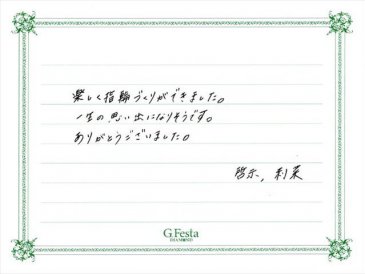 楽しく指輪づくりができました。
一生の思い出になりそうです。
ありがとうございました。
啓示, 利菜
G.Festa
DIAMOND